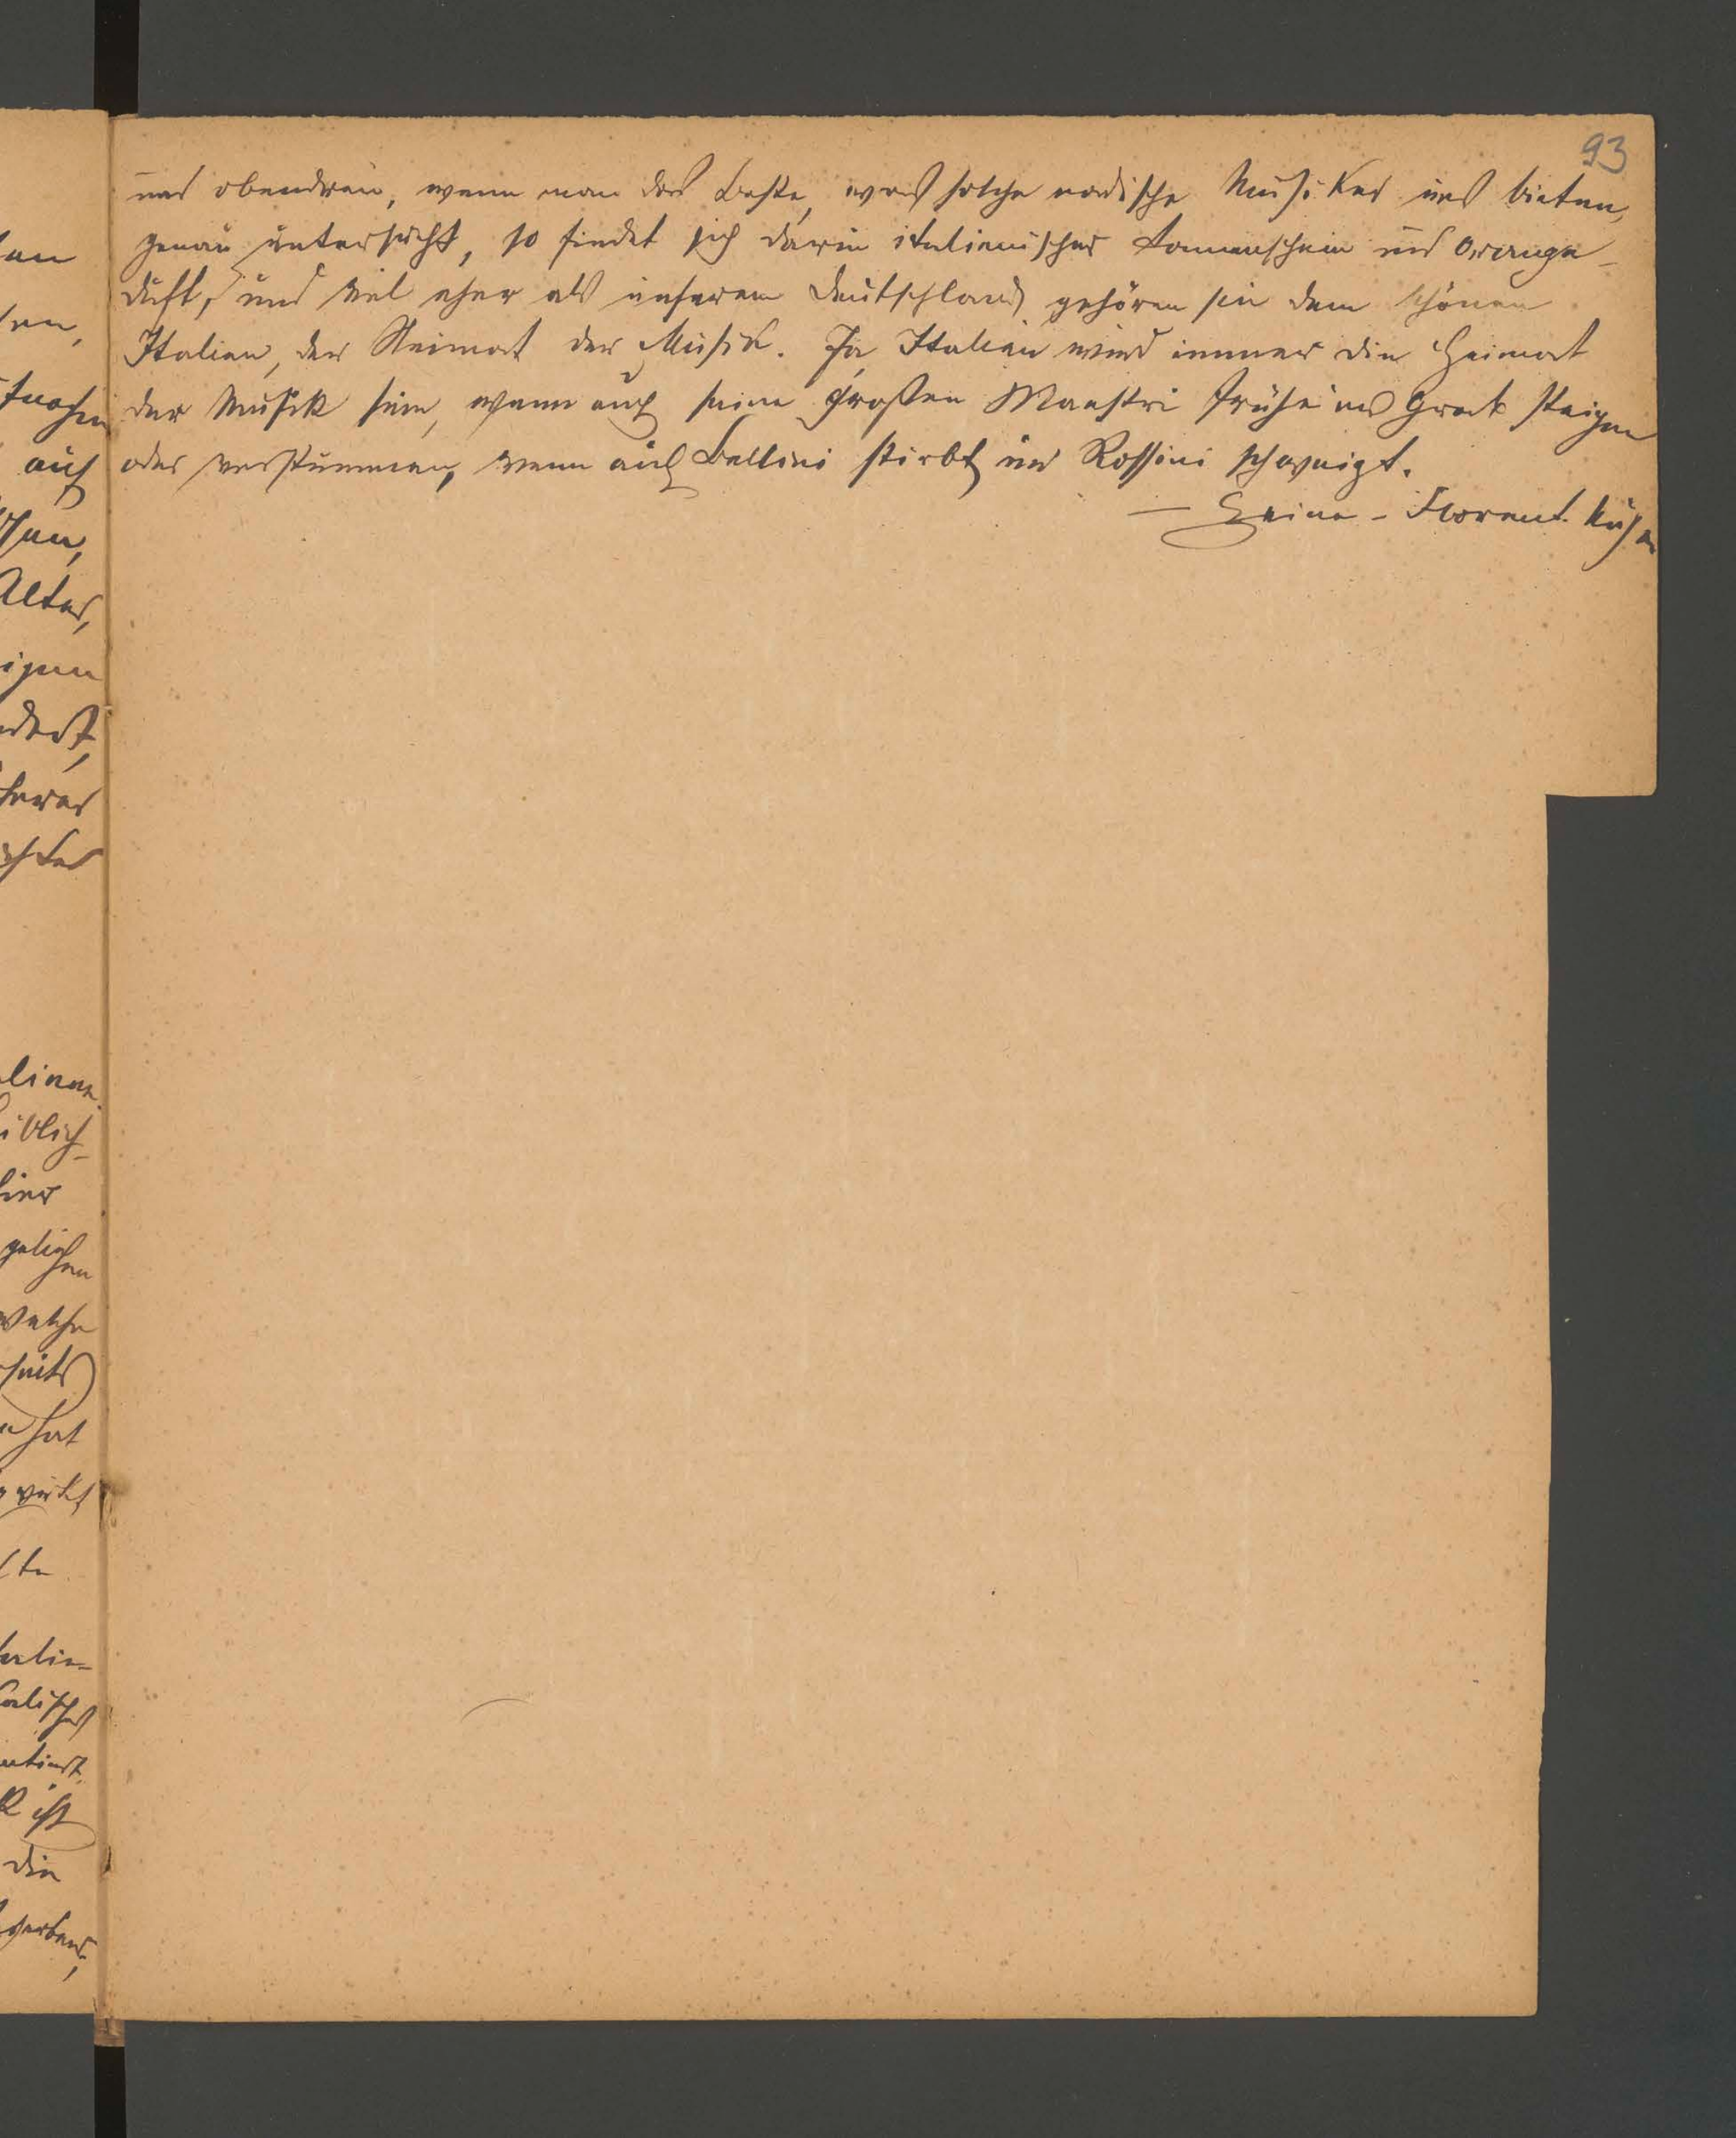 93
und obendrein, wenn man das Beste, was solche nordische Musiker uns bieten,
genau untersucht, so findet sich darin italienischer Sonnenschein und Orange-
duft, und viel eher als unserem Deutschland gehören sie dem schönen
Italien, der Heimat der Musik. Ja, Italien wird immer die Heimat
der Musik sein, wenn auch seine großen Maestri frühe ins Grab steigen
oder verstummen, wenn auch Bellini stirbt und Rossini schweigt.
— Heine - Florent. Näch
auf
Alter,
hat
ist
die